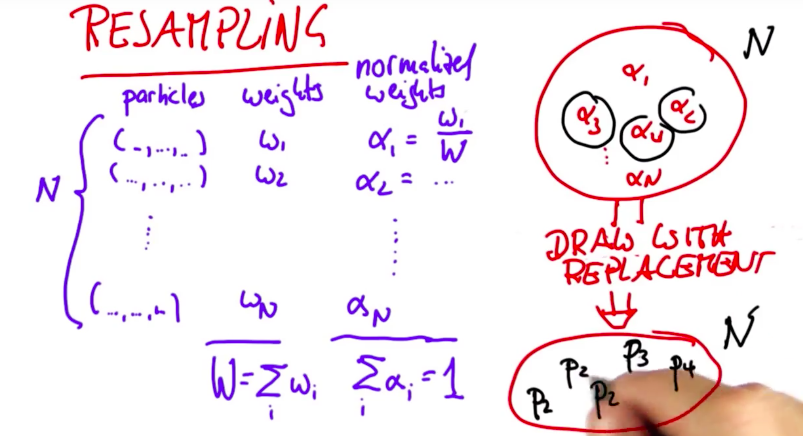 RESAMPLING
particles weights normalized weights
N
(-,...,..) ω₁ α₁ = ω₁/W
(...,..,..) ω₂ α₂ = ...
(...,...,..) ωN αN
W = Σᵢ ωᵢ Σᵢ αᵢ = 1
N
α₁
α₃ α₄ α₂
αN
DRAW WITH
REPLACEMENT
N
P₂ P₂ P₂ P₃ P₄